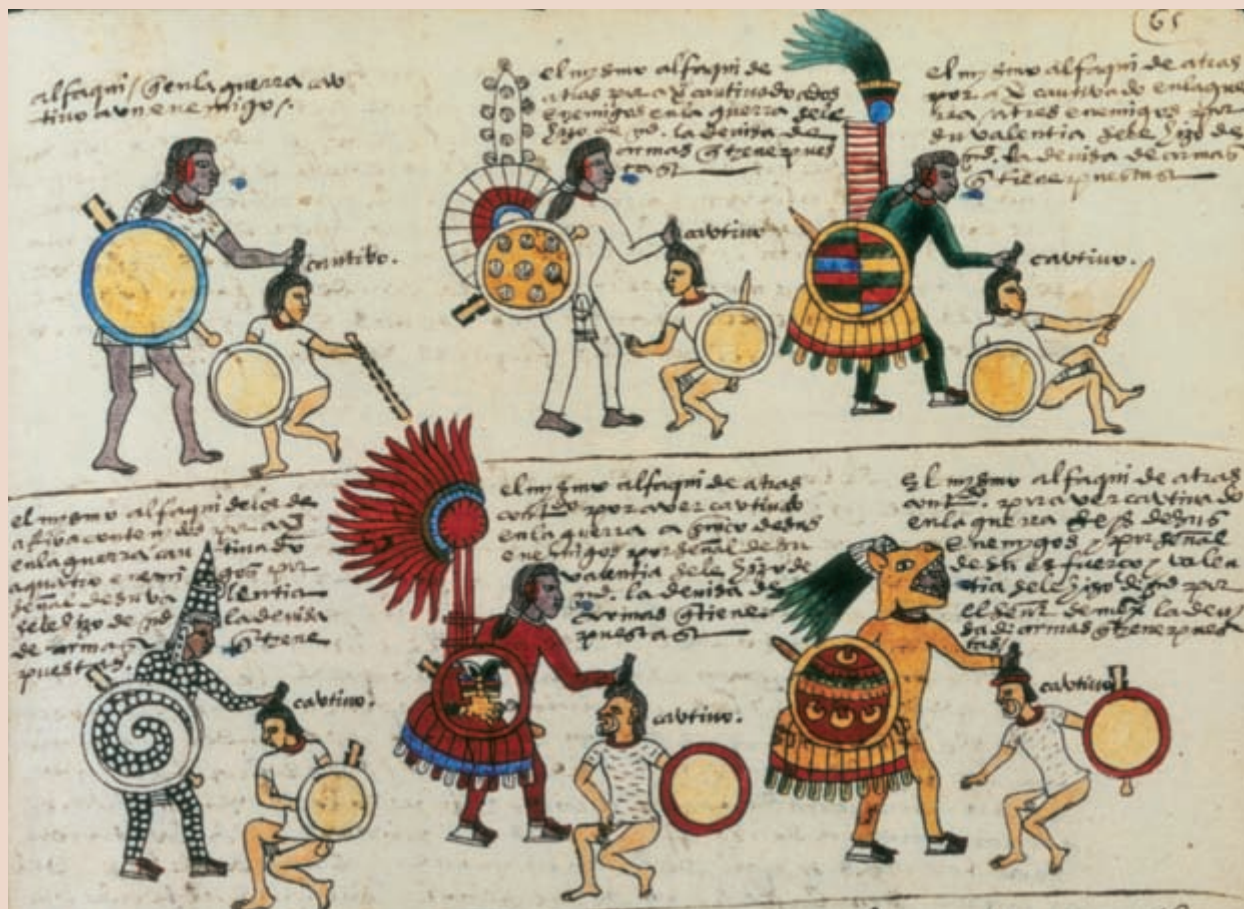 65
alfaqui / q̃ en la guerra cau
tivo a un enemigo /.
cautibo.
el mysmo alfaqui de
atras por aver cautivado dos
enemigos en la guerra sele
hizo la devisa de
armas q̃ tiene pues
tas
cautivo
el mysmo alfaqui de atras
por aver cautivado en la gue
rra / a tres enemigos por
su valentia sele hizo de
la devisa de armas
q̃ tiene puestas
cautivo.
el mysmo alfaqui de los de
arriba contenidos por aver
en la guerra cautivado
a quatro enemigos por
señal de su valentia
sele hizo de la devisa
de armas q̃ tiene
puestas.
cautivo.
el mysmo alfaqui de atras
por aver cautivado
en la guerra a cinco de sus
enemigos por señal de su
valentia sele hizo de
la devisa de
armas q̃ tiene
puestas
cautivo.
El mysmo alfaqui de atras
por aver cautivado
en la guerra de sus
enemygos / por señal
de su esfuerço / valen
tia sele hizo por
el señor de la devi
sa de armas q̃ tiene pues
tas /
cautivo